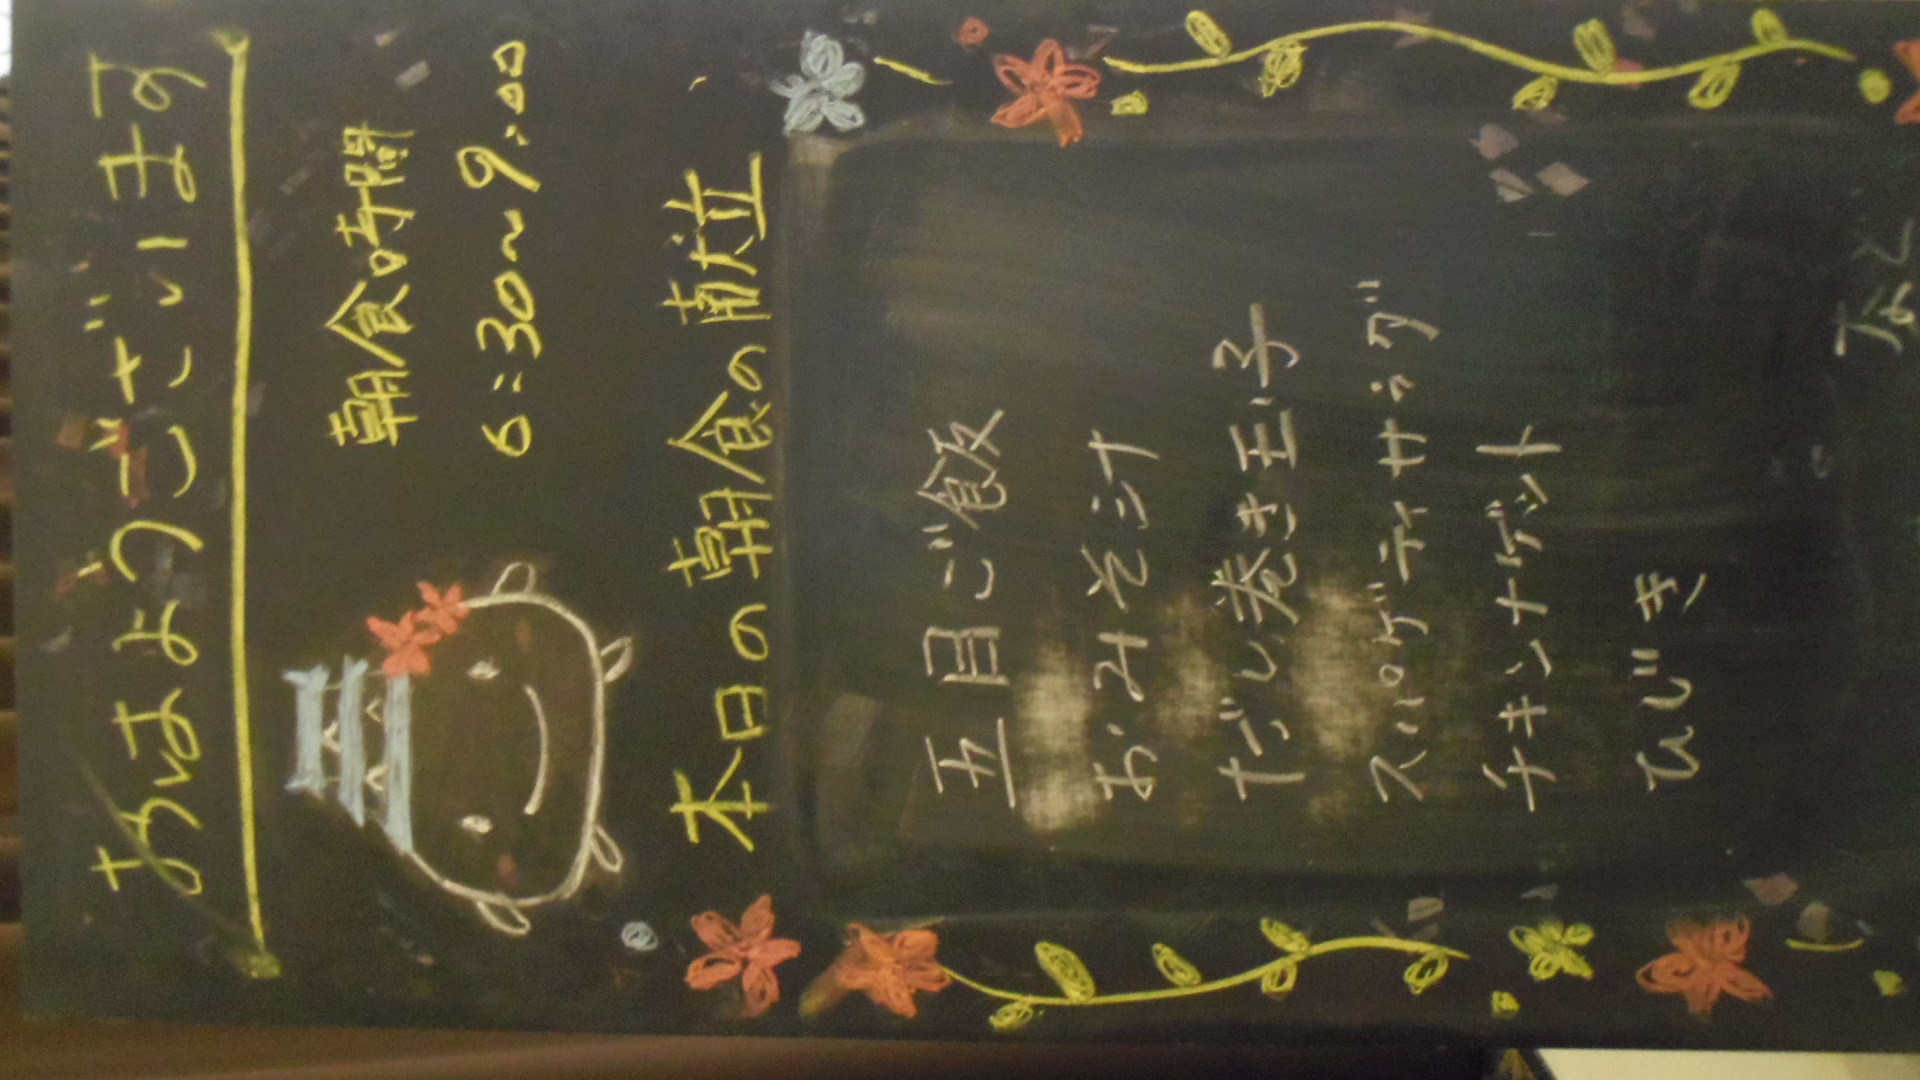 おはようございます
朝食時間
6:30~9:00
本日の朝食の献立
五目ご飯
おみそ汁
だし巻き玉子
スパゲティサラダ
チキンナゲット
ひじき
など